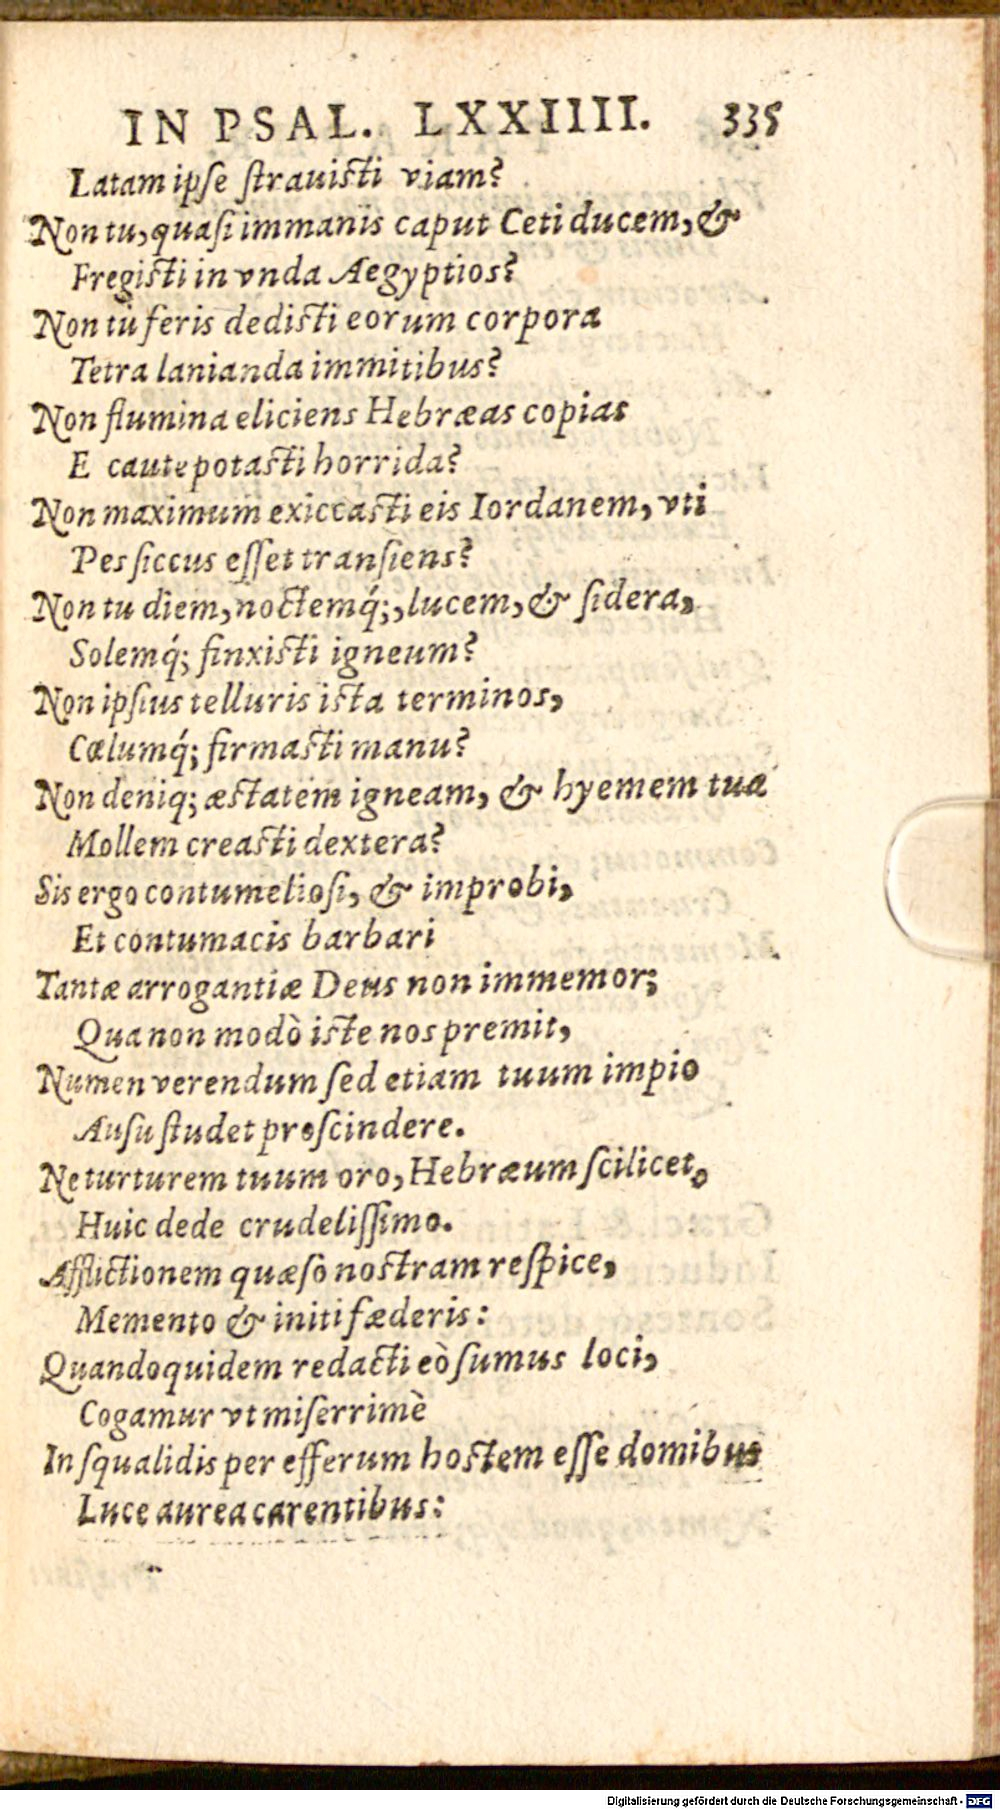 IN PSAL. LXXIIII. 335
Latam ipse stravisti viam?
Non tu, quasi immanis caput Ceti ducem, &
Fregisti in vnda Aegyptios?
Non tu feris dedisti eorum corpora
Tetra lanianda immitibus?
Non flumina eliciens Hebræas copias
E caute potasti horrida?
Non maximum exiccasti eis Iordanem, vti
Pes siccus esset transiens?
Non tu diem, noctemq́;, lucem, & sidera,
Solemq́; finxisti igneum?
Non ipsius telluris ista terminos,
Cælumq́; firmasti manu?
Non deniq; æstatem igneam, & hyemem tua
Mollem creasti dextera?
Sis ergo contumeliosi, & improbi,
Et contumacis barbari
Tantæ arrogantiæ Deus non immemor;
Qua non modò iste nos premit,
Numen verendum sed etiam tuum impio
Ausu studet proscindere.
Ne turturem tuum oro, Hebræum scilicet,
Huic dede crudelissimo.
Afflictionem quæso nostram respice,
Memento & initi fæderis:
Quandoquidem redacti eò sumus loci,
Cogamur vt miserrimè
In squalidis per efferum hostem esse domibus
Luce aurea carentibus:
Digitalisierung gefördert durch die Deutsche Forschungsgemeinschaft - DFG